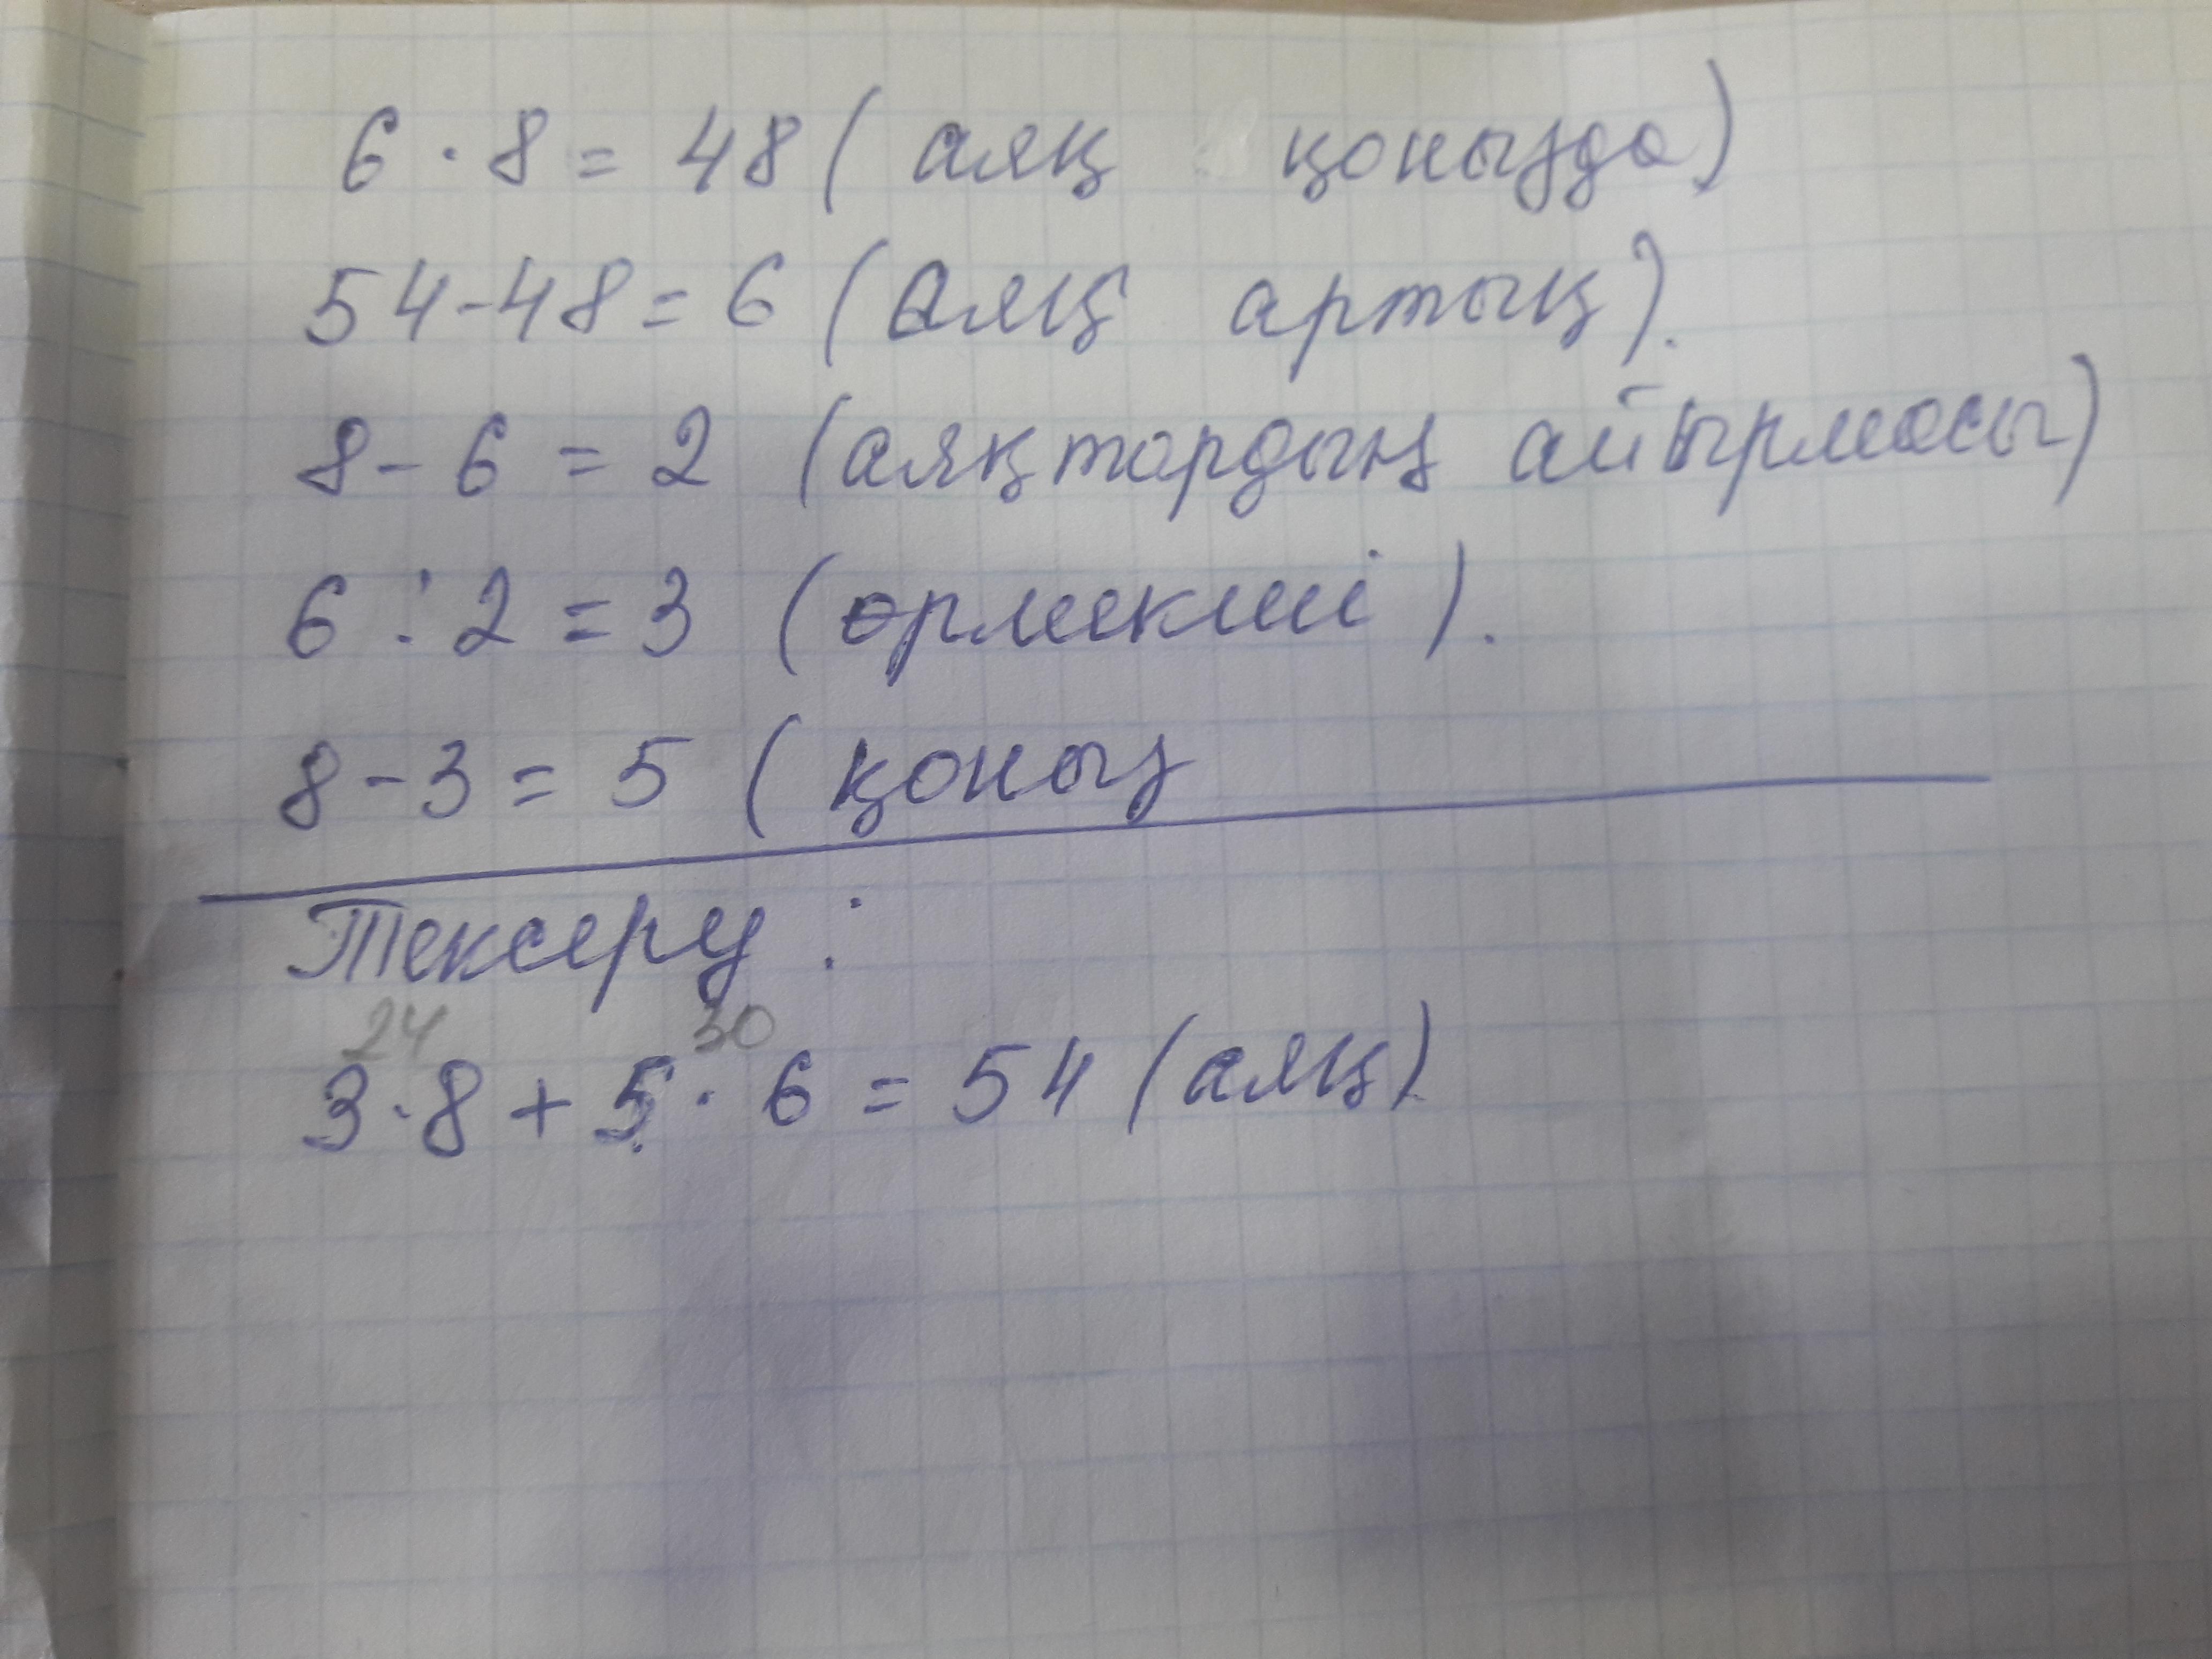 6 · 8 = 48 ( аяқ қонызда)
54 - 48 = 6 ( аяқ артық).
8 - 6 = 2 (аяқтардың айырмасы)
6 : 2 = 3 (өрмекші).
8 - 3 = 5 ( қоныз
Тексеру :
24 30
3 · 8 + 5 · 6 = 54 (аяқ)